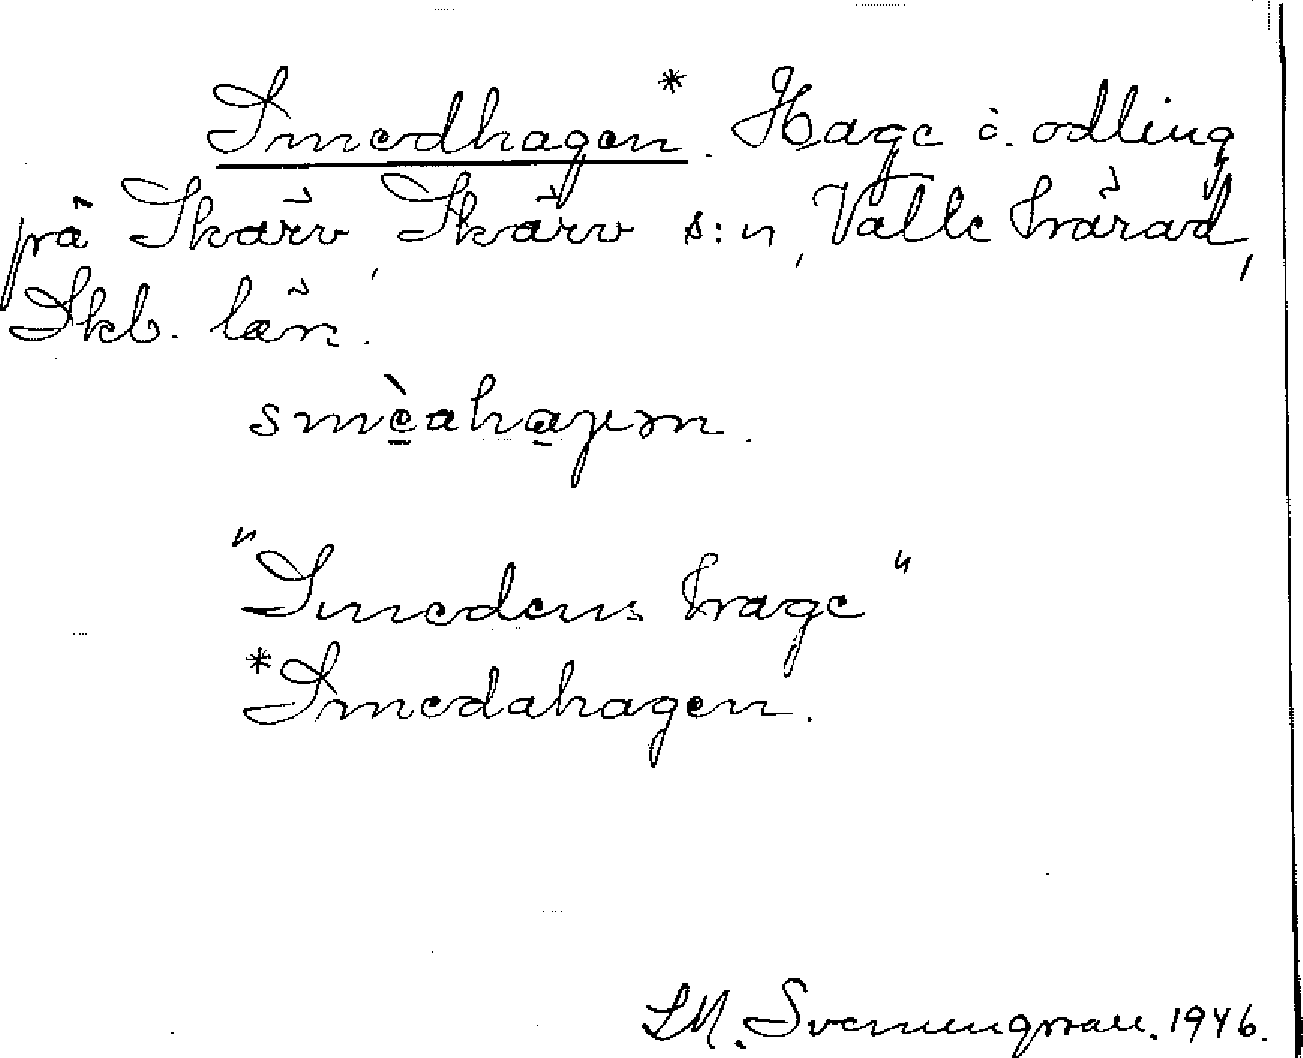 Smedhagen*. Hage o. odling
på Skärv, Skärv s:n, Valle härad,
Skb. län.
smèahaɡən.
"Smedens hage"
*Smedahagen.
S.M. Svenungsson. 1946.